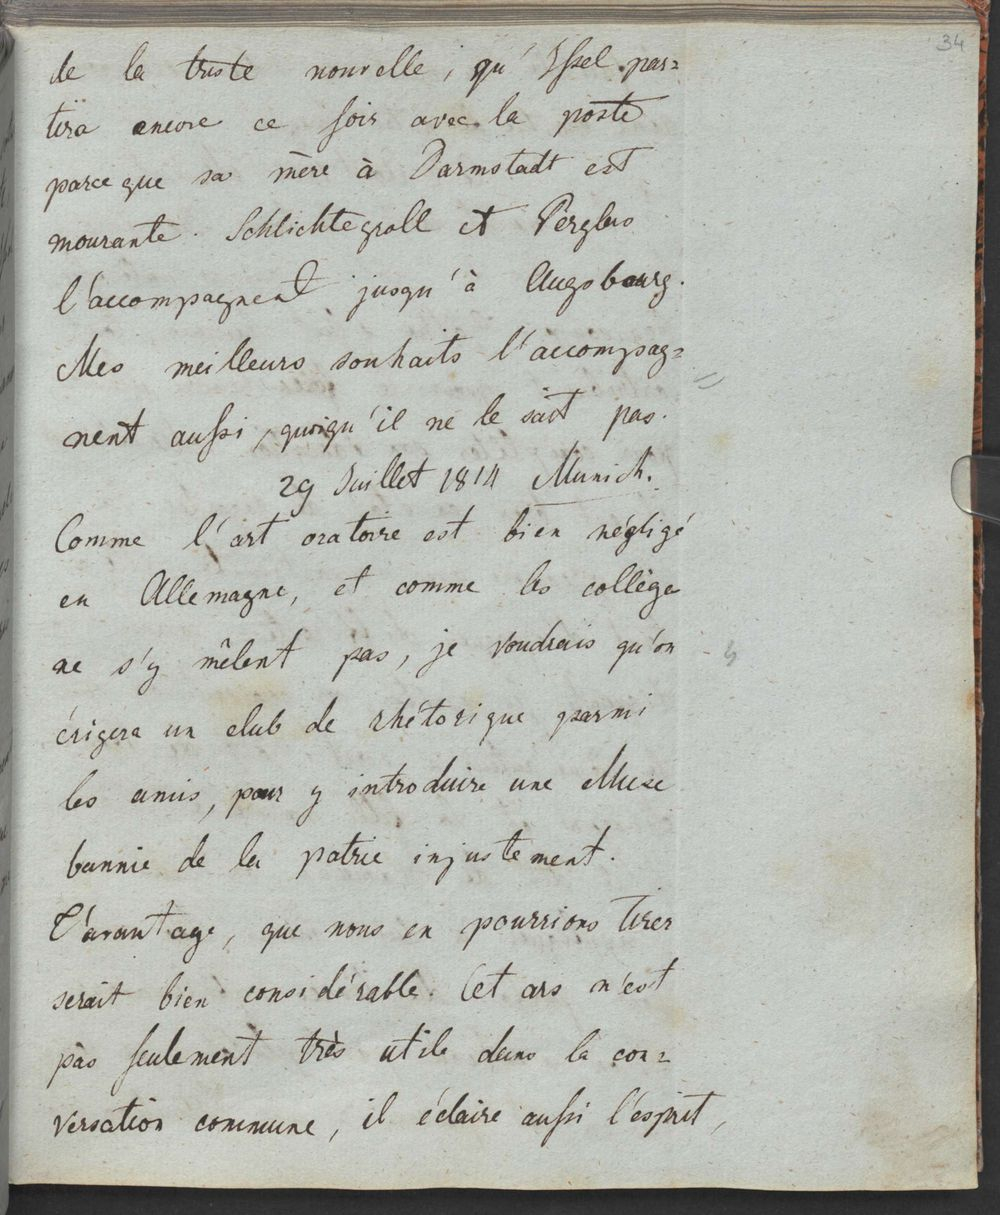 34
de la triste nouvelle, qu'Issel par=
tira encore ce soir avec la poste
parceque sa mère à Darmstadt est
mourante. Schlichtegroll et Perglas
l'accompagnent jusqu'à Augsbourg.
Mes meilleurs souhaits l'accompag=
nent aussi, quoiqu'il ne le sait pas.
29 Juillet 1814 Munich.
Comme l'art oratoire est bien négligé
en Allemagne, et comme les collège
ne s'y mêlent pas, je voudrais qu'on
érigera un club de rhétorique parmi
les amis, pour y introduire une Muse
bannie de la patrie injustement.
L'avantage, que nous en pourrions tirer
serait bien considérable. Cet ars n'est
pas seulement très utile dans la con=
versation commune, il éclaire aussi l'esprit,